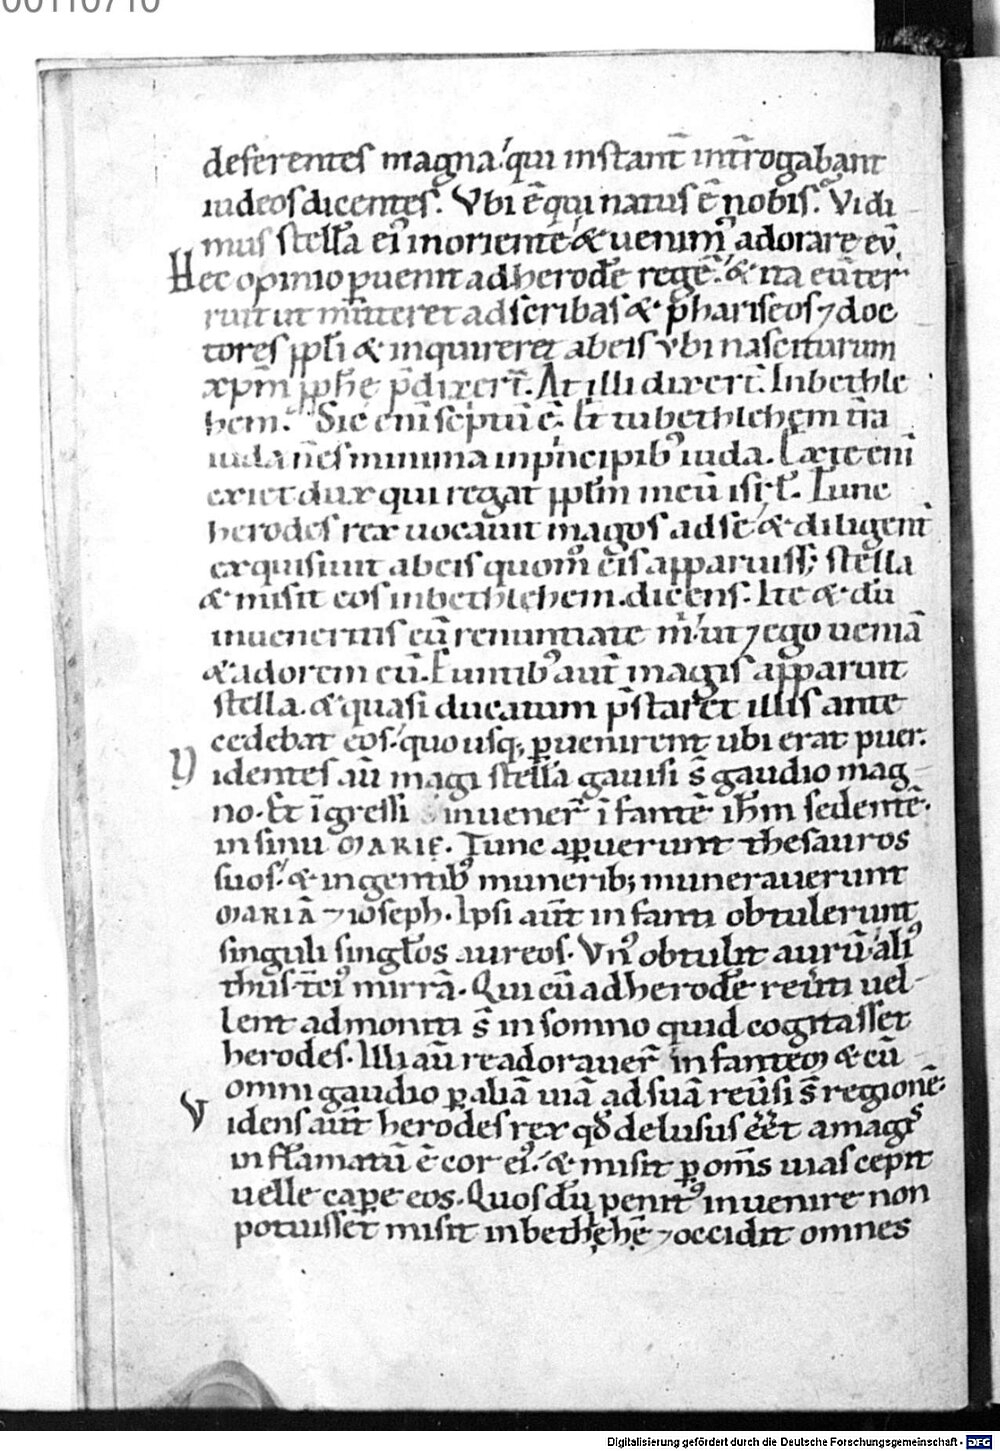 00110710
deferentes magna. qui instant̄ int̄rogabant
iudeos dicentes. Vbi ē qui natus ē nobis. Vidi
mus stellā ei᷒ in oriente & uenim᷒ adorare eū.
Hec opinio ꝑuenit ad herodē regē. & ita eū ter
ruit ut mitteret ad scribas & phariseos ⁊ doc
tores ppl̄i & inquireret ab eis ubi nasciturum
xpm̄ pphę p̄dixer̄t. At illi dixer̄t. In bethle
hem. Sic eni scptū ē. Et tu bethlehem t̄ra
iuda n̄es minima in pncipib᷒ iuda. Ex te eni
exiet dux qui regat ppl̄m meū isrl̄. Tunc
herodes rex uocauit magos ad se & diligent̄
exquisiuit ab eis quom᷒ eis apparuiss; stella
& misit eos in bethlehem dicens. Ite & dū
inueneritis eū renuntiate m̄ ut ⁊ ego ueniā
& adorem eū. Euntib᷒ aut̄ magis apparuit
stella. & quasi ducatum p̄staret illis ante
cedebat eos. quo usq; ꝑuenirent ubi erat puer.
Videntes aū magi stellā gauisi s̄ gaudio mag
no. Et īgressi inuener̄ īfantē ihm̄ sedentē
in sinu MARIE. Tunc apuerunt thesauros
suos. & ingentib᷒ munerib; munerauerunt
MARIĀ ⁊ ioseph. Ipsi aūt infanti obtulerunt
singuli singlōs aureos. Vn᷒ obtulit aurū. ali᷒
thus. t̄ci᷒ mirrā. Qui cū ad herodē reuti uel
lent admoniti s̄ in somno quid cogitasset
herodes. Illi aū readorauer̄ infantem & cū
omni gaudio ꝑ aliā uiā ad suā reūsi s̄ regionē.
Videns aūt herodes rex qđ delusus eēt a magis
inflamatū ē cor ei᷒. & misit ꝑ om̄s uias cepit
uelle capere eos. Quos dū penit᷒ inuenire non
potuisset misit in bethęhē ⁊ occidit omnes
Digitalisierung gefördert durch die Deutsche Forschungsgemeinschaft - DFG